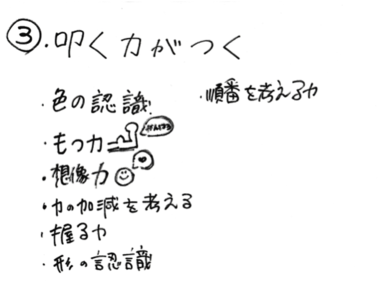 ③.叩く力がつく
・色の認識
・順番を考える力
・もつ力
・想像力
・力の加減を考える
・握る力
・形の認識